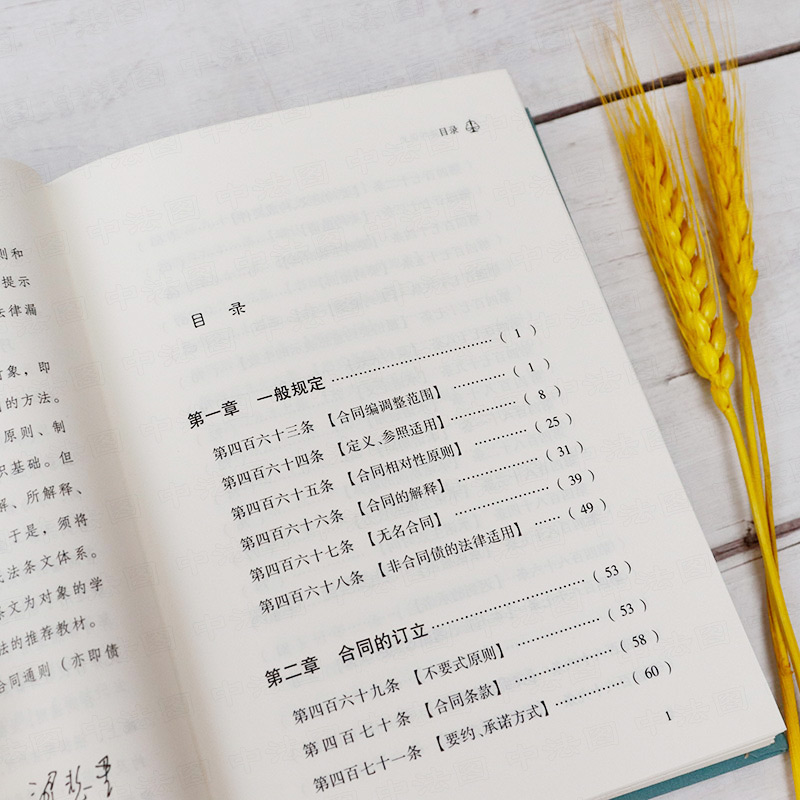 则和
提示
法律漏
对象，即
的方法。
原则、制
识基础。但
解、所解释、
于是，须将
法条文体系。
条文为对象的学
法的推荐教材。
合同通则（亦即债
目录
目 录
第一章 一般规定 ……………………（ 1 ）
第四百六十三条 【合同编调整范围】 …………（ 1 ）
第四百六十四条 【定义、参照适用】 …………（ 8 ）
第四百六十五条 【合同相对性原则】 …………（ 25 ）
第四百六十六条 【合同的解释】 …………（ 31 ）
第四百六十七条 【无名合同】 …………（ 39 ）
第四百六十八条 【非合同债的法律适用】 ……（ 49 ）
第二章 合同的订立 ……………………（ 53 ）
第四百六十九条 【不要式原则】 …………（ 53 ）
第四百七十条 【合同条款】 …………（ 58 ）
第四百七十一条 【要约、承诺方式】 …………（ 60 ）
1